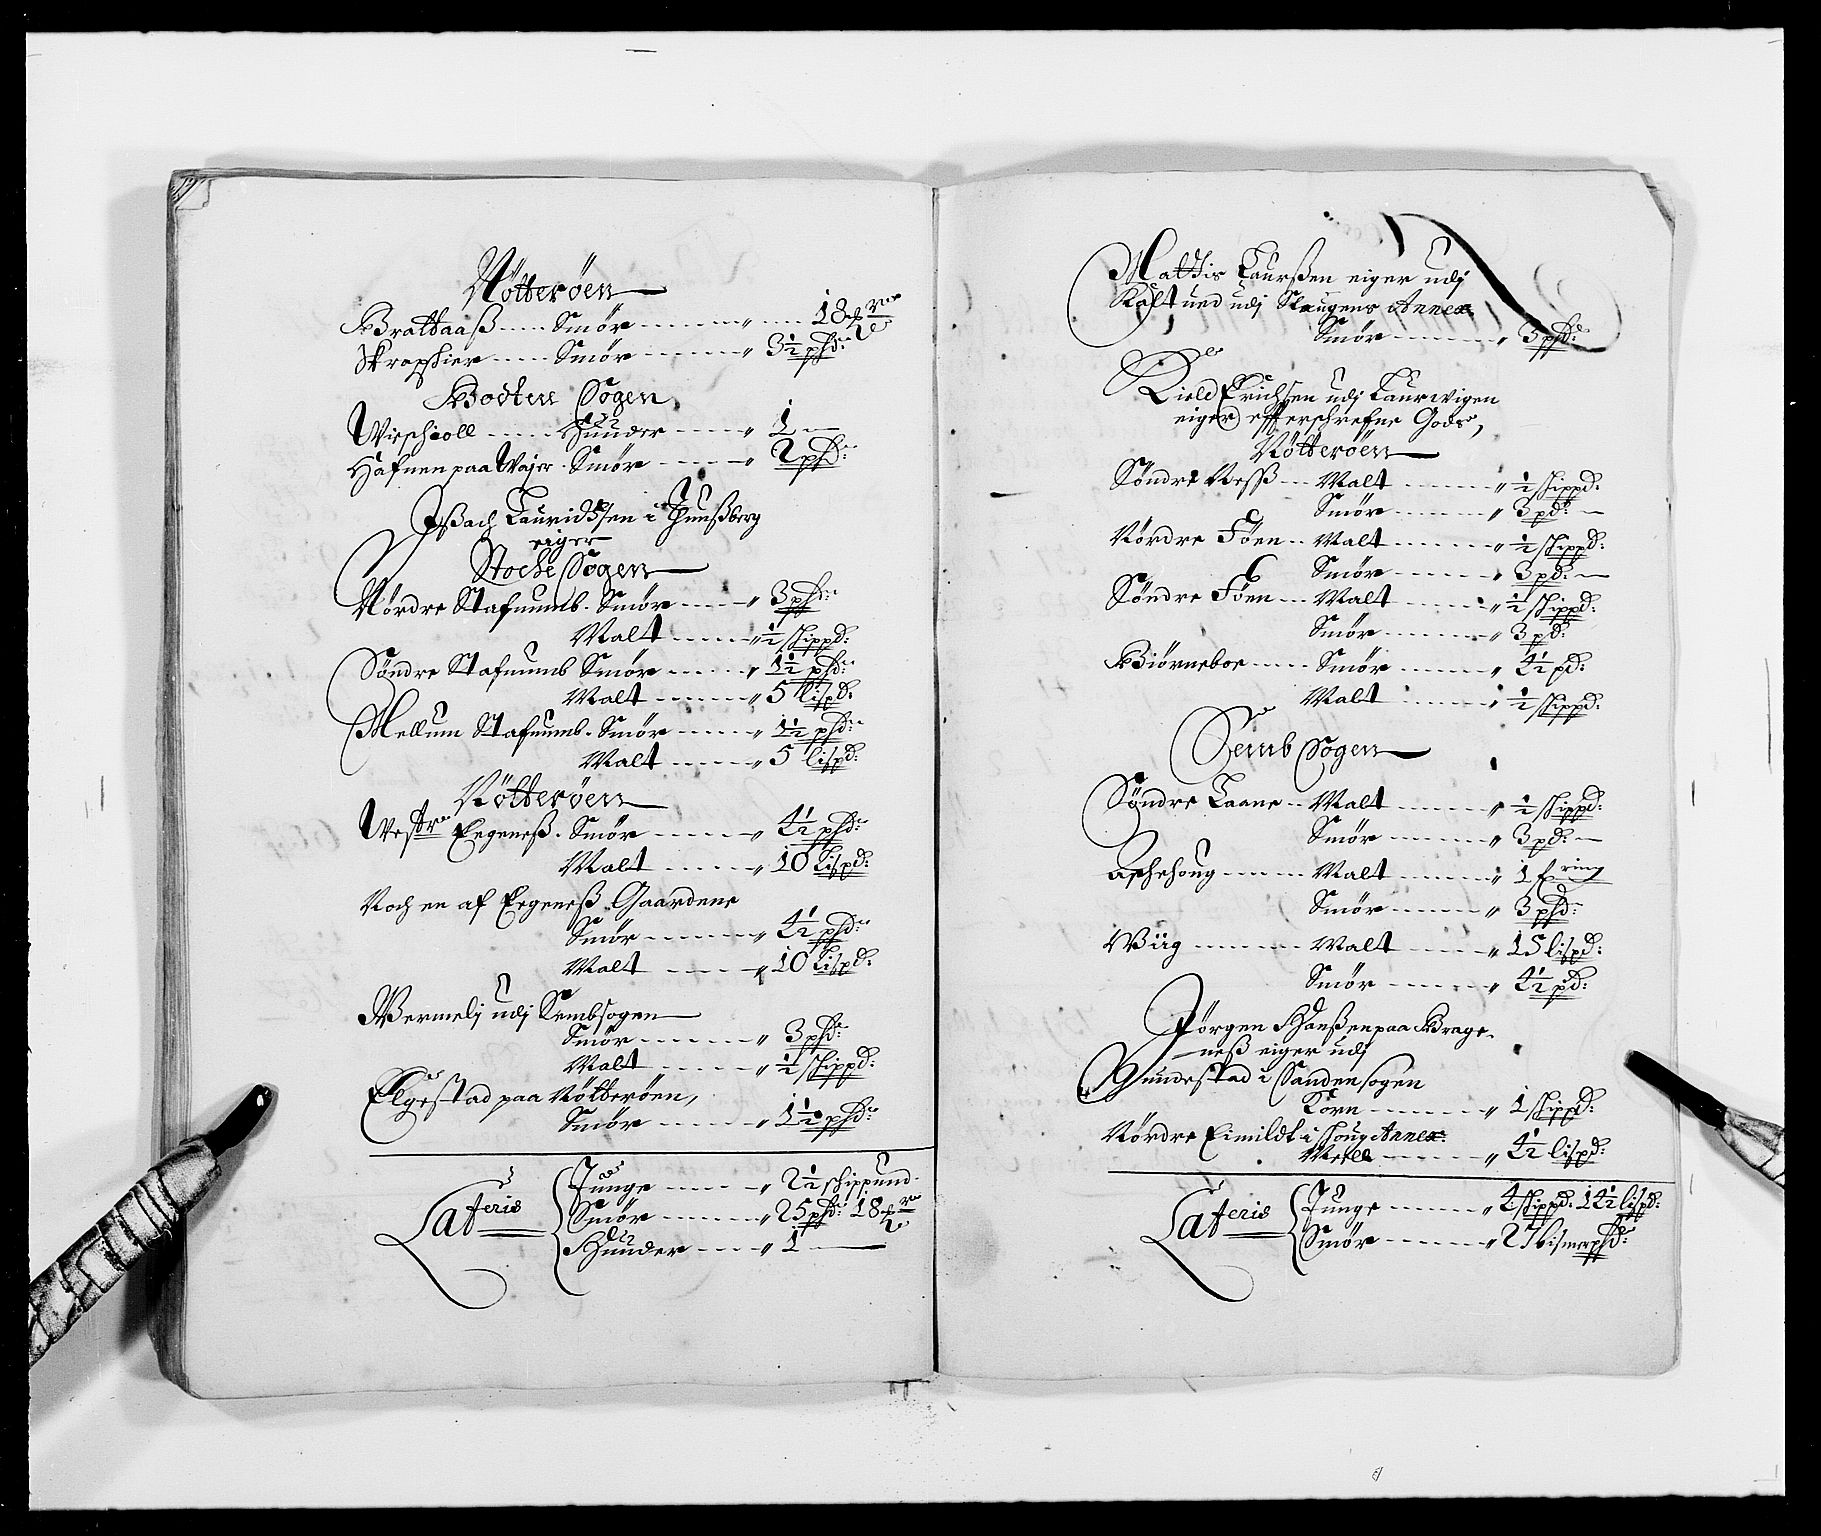 Nötterøen
Brattaaß ---- Smör ------ „ --- 18
Smör ------ „ 3½ phd:
Bodten Sogen
Wirschioll ----- Huuder ---- „ 1 —
Hafnen paa Wajer. Smör ----- „ 2 phd:
Ißach Lauridtzen i Thunßberg
eiger
Stoche Sogen
Nordre Stafnumb. Smör ---- „ 3 phd:
Malt ----- „ ½ schippd:
Söndre Stafnumb Smör ----- „ 1½ phd:
Malt ----- „ 5 lispd:
Mellum Stafnumb. Smör ----- „ 1½ phd:
Malt ----- „ 5 lispd:
Nötterøen
Westre Eegeneß. Smör ----- „ 4½ phd:
Malt ----- „ 10 Lispd:
Noch en af Eegeneß Gaardene
Smör ------ „ 4½ phd:
Malt ----- „ 10 Lispd:
Wermelj udj Sembsogen
Smör ------ „ 3 phd:
Malt ----- „ ½ schippd:
Elgestad paa Nötterøen,
Smör ----- „ 1½ phd:
Lateris
Tunge ----- „ 2½ schippund
Smör ------ „ 25 phd: 18
Huuder ---- „ 1 —
Mattis Laurßen eiger udj
udj Slaugens Annex
Smör ------ „ 3 phd:
Kield Erichsen udj Laurwigen
eiger effterschrefne Gods,
Nötterøen
Söndre Neß --- Malt ------ „ ½ schippd:
Smör ------ „ 3 pd: —
Nordre Föen -- Malt ------ „ ½ schippd:
Smör ------ „ 3 pd: —
Söndre Föen --- Malt ------ „ ½ schippd:
Smör ------ „ 3 pd:
Biörneboe ----- Smör ------ „ 4½ pd:
Malt ------ „ ½ schippd:
Semb Sogen
Söndre Laane -- Malt ------ „ ½ schippd:
Smör ------ „ 3 pd: —
Aschehoug ------ Malt ------ „ 1 fering
Smör ------ „ 3 phd:
Wiig ------- Malt ----- „ 15 lispd:
Smör ------ „ 4½ pd:
Jörgen Hanßen paa Brage-
neß eiger udj
Gundestad i Sanden sogen
Korn ------- „ 1 schippd:
Nordre Eimildt i Annex:
Meell ------ „ 4½ lispd:
Lateris
Tunge ------ „ 4 schippd: 14½ lispd:
Smör ------- „ 27 bismerphd: